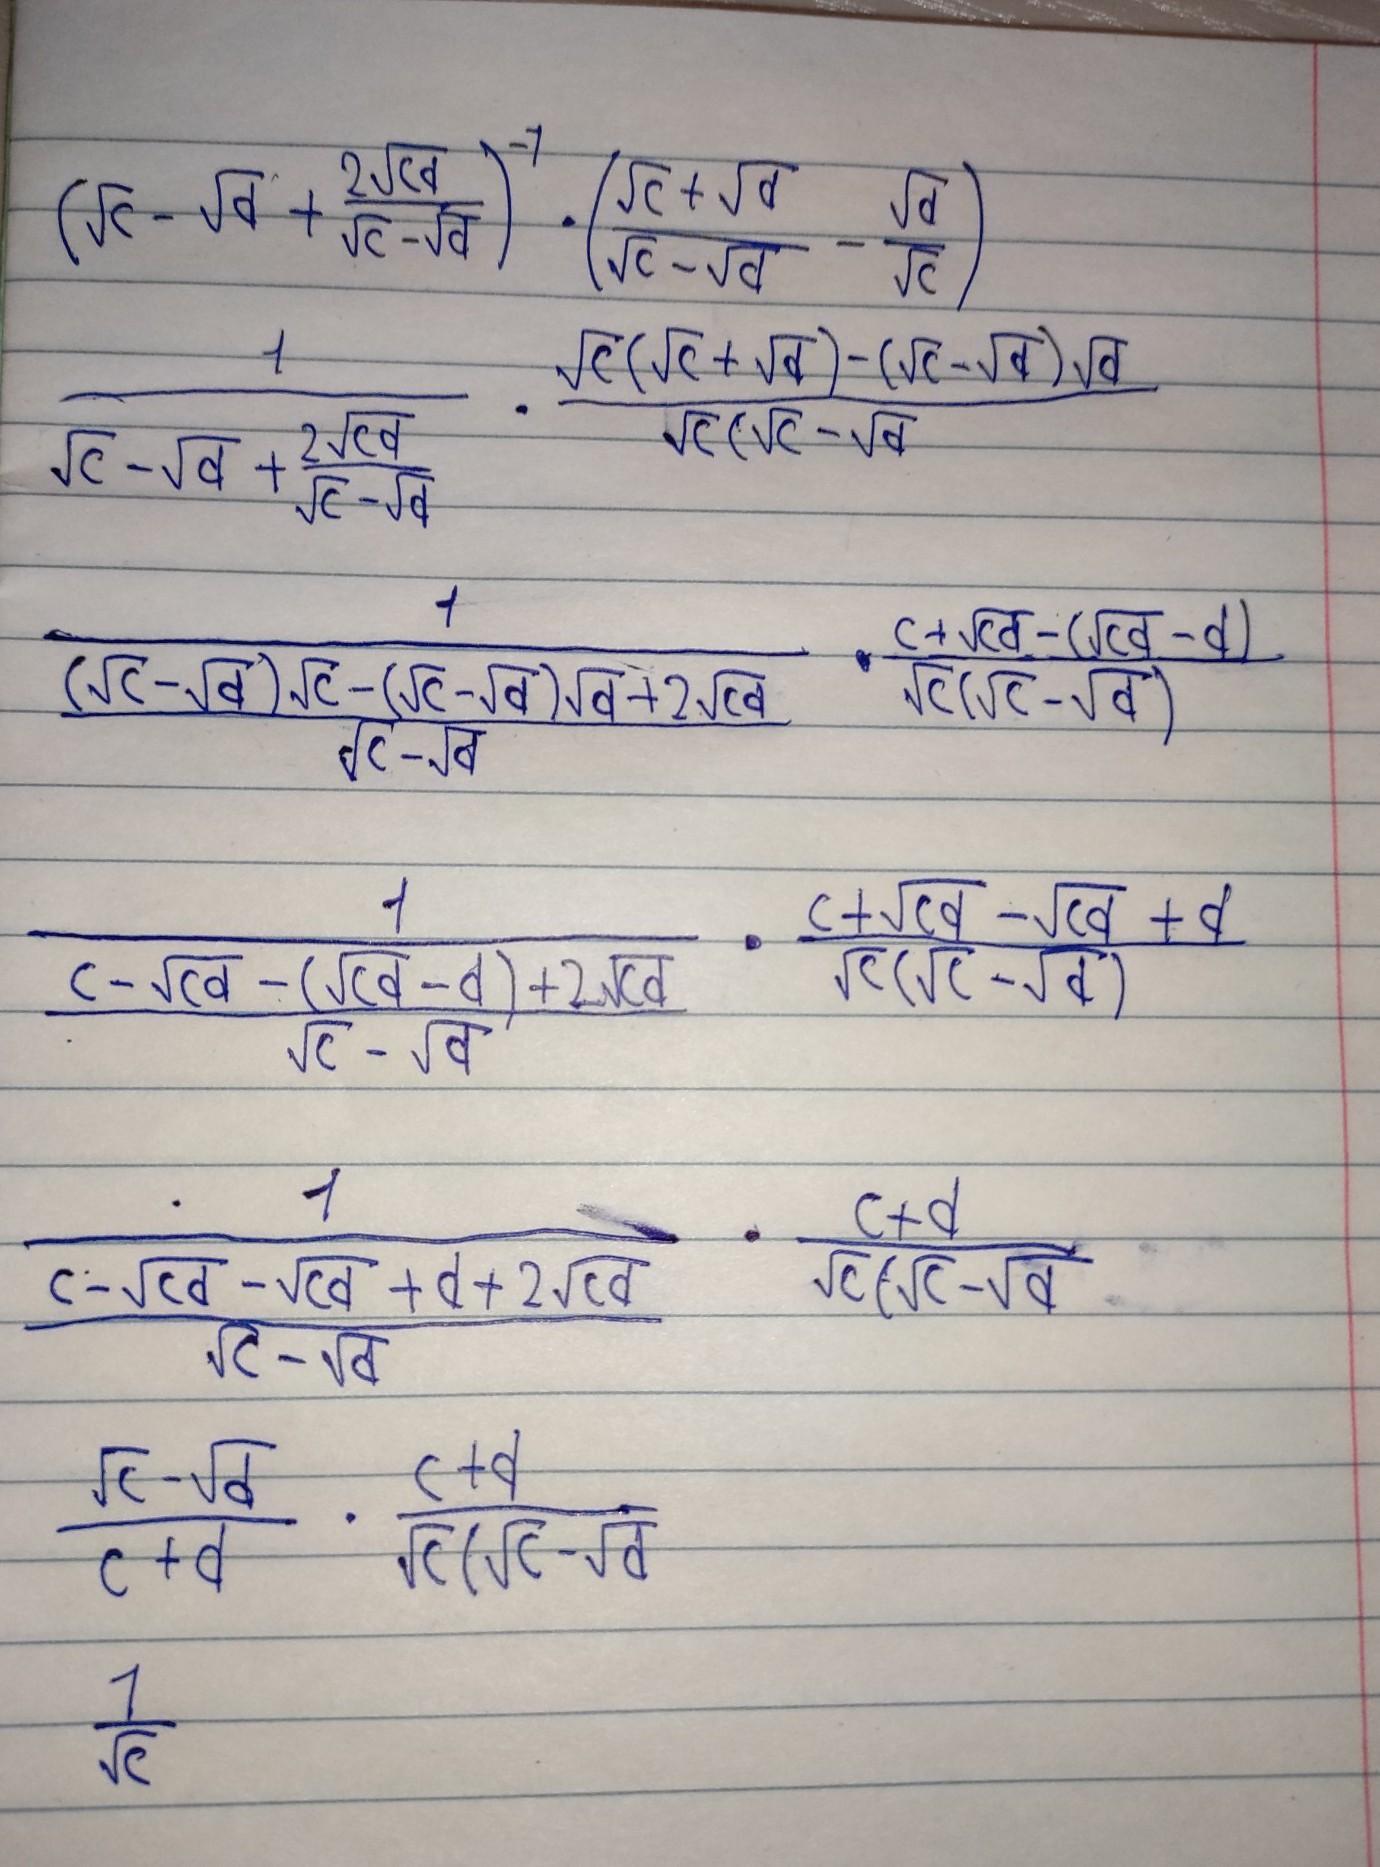 (√c - √d + 2√cd/(√c - √d))⁻¹ · ((√c + √d)/(√c - √d) - √d/√c)
1/(√c - √d + 2√cd/(√c - √d)) · (√c(√c + √d) - (√c - √d)√d)/(√c(√c - √d
1/(((√c - √d)√c - (√c - √d)√d + 2√cd)/(√c - √d)) · (c + √cd - (√cd - d))/(√c(√c - √d))
1/((c - √cd - (√cd - d) + 2√cd)/(√c - √d)) · (c + √cd - √cd + d)/(√c(√c - √d))
1/((c - √cd - √cd + d + 2√cd)/(√c - √d)) · (c + d)/(√c(√c - √d
(√c - √d)/(c + d) · (c + d)/(√c(√c - √d
1/√c